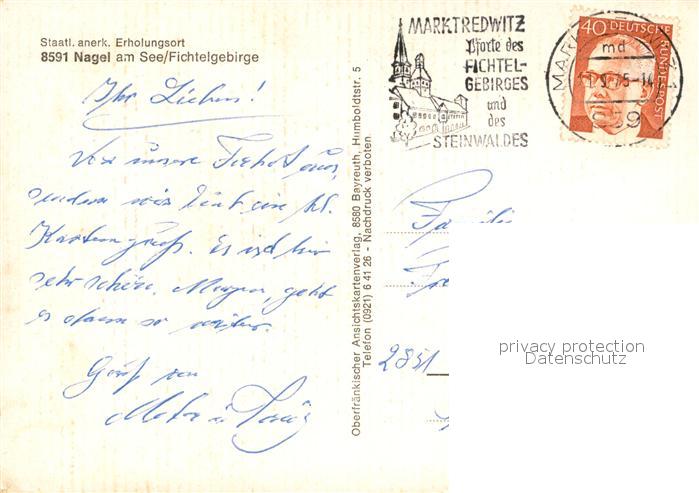 Staatl. anerk. Erholungsort
8591 Nagel am See/Fichtelgebirge
Ihr Lieben!
Von unsere
senden wir Euch ein kl.
Kartengruß. Es ist hier
sehr schön. Morgen geht
es dann so weiter.
Gruß von
Oberfränkischer Ansichtskartenverlag, 8580 Bayreuth, Humboldtstr. 5
Telefon (0921) 6 41 26 - Nachdruck verboten
MARKTREDWITZ
Pforte des
FICHTEL-
GEBIRGES
und
des
STEINWALDES
40 DEUTSCHE BUNDESPOST
md
Famili
2851
privacy protection
Datenschutz